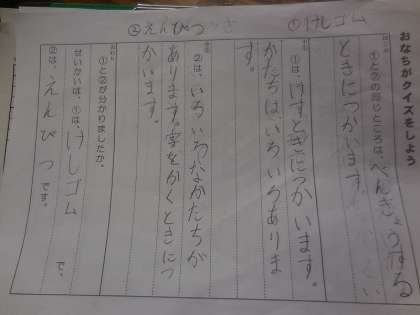 ①けしゴム
②えんぴつ
おなちがクイズをしよう
①と②の同じところは、べんきょうする
ときにつかいます。
①は、けすときにつかいます。
かたちは、いろいろありま
す。
②は、いろいろなかたちが
あります。字をかくときにつ
かいます。
①と②が分かりましたか。
せいかいは、①は、けしゴム で、
②は、えんぴつ です。